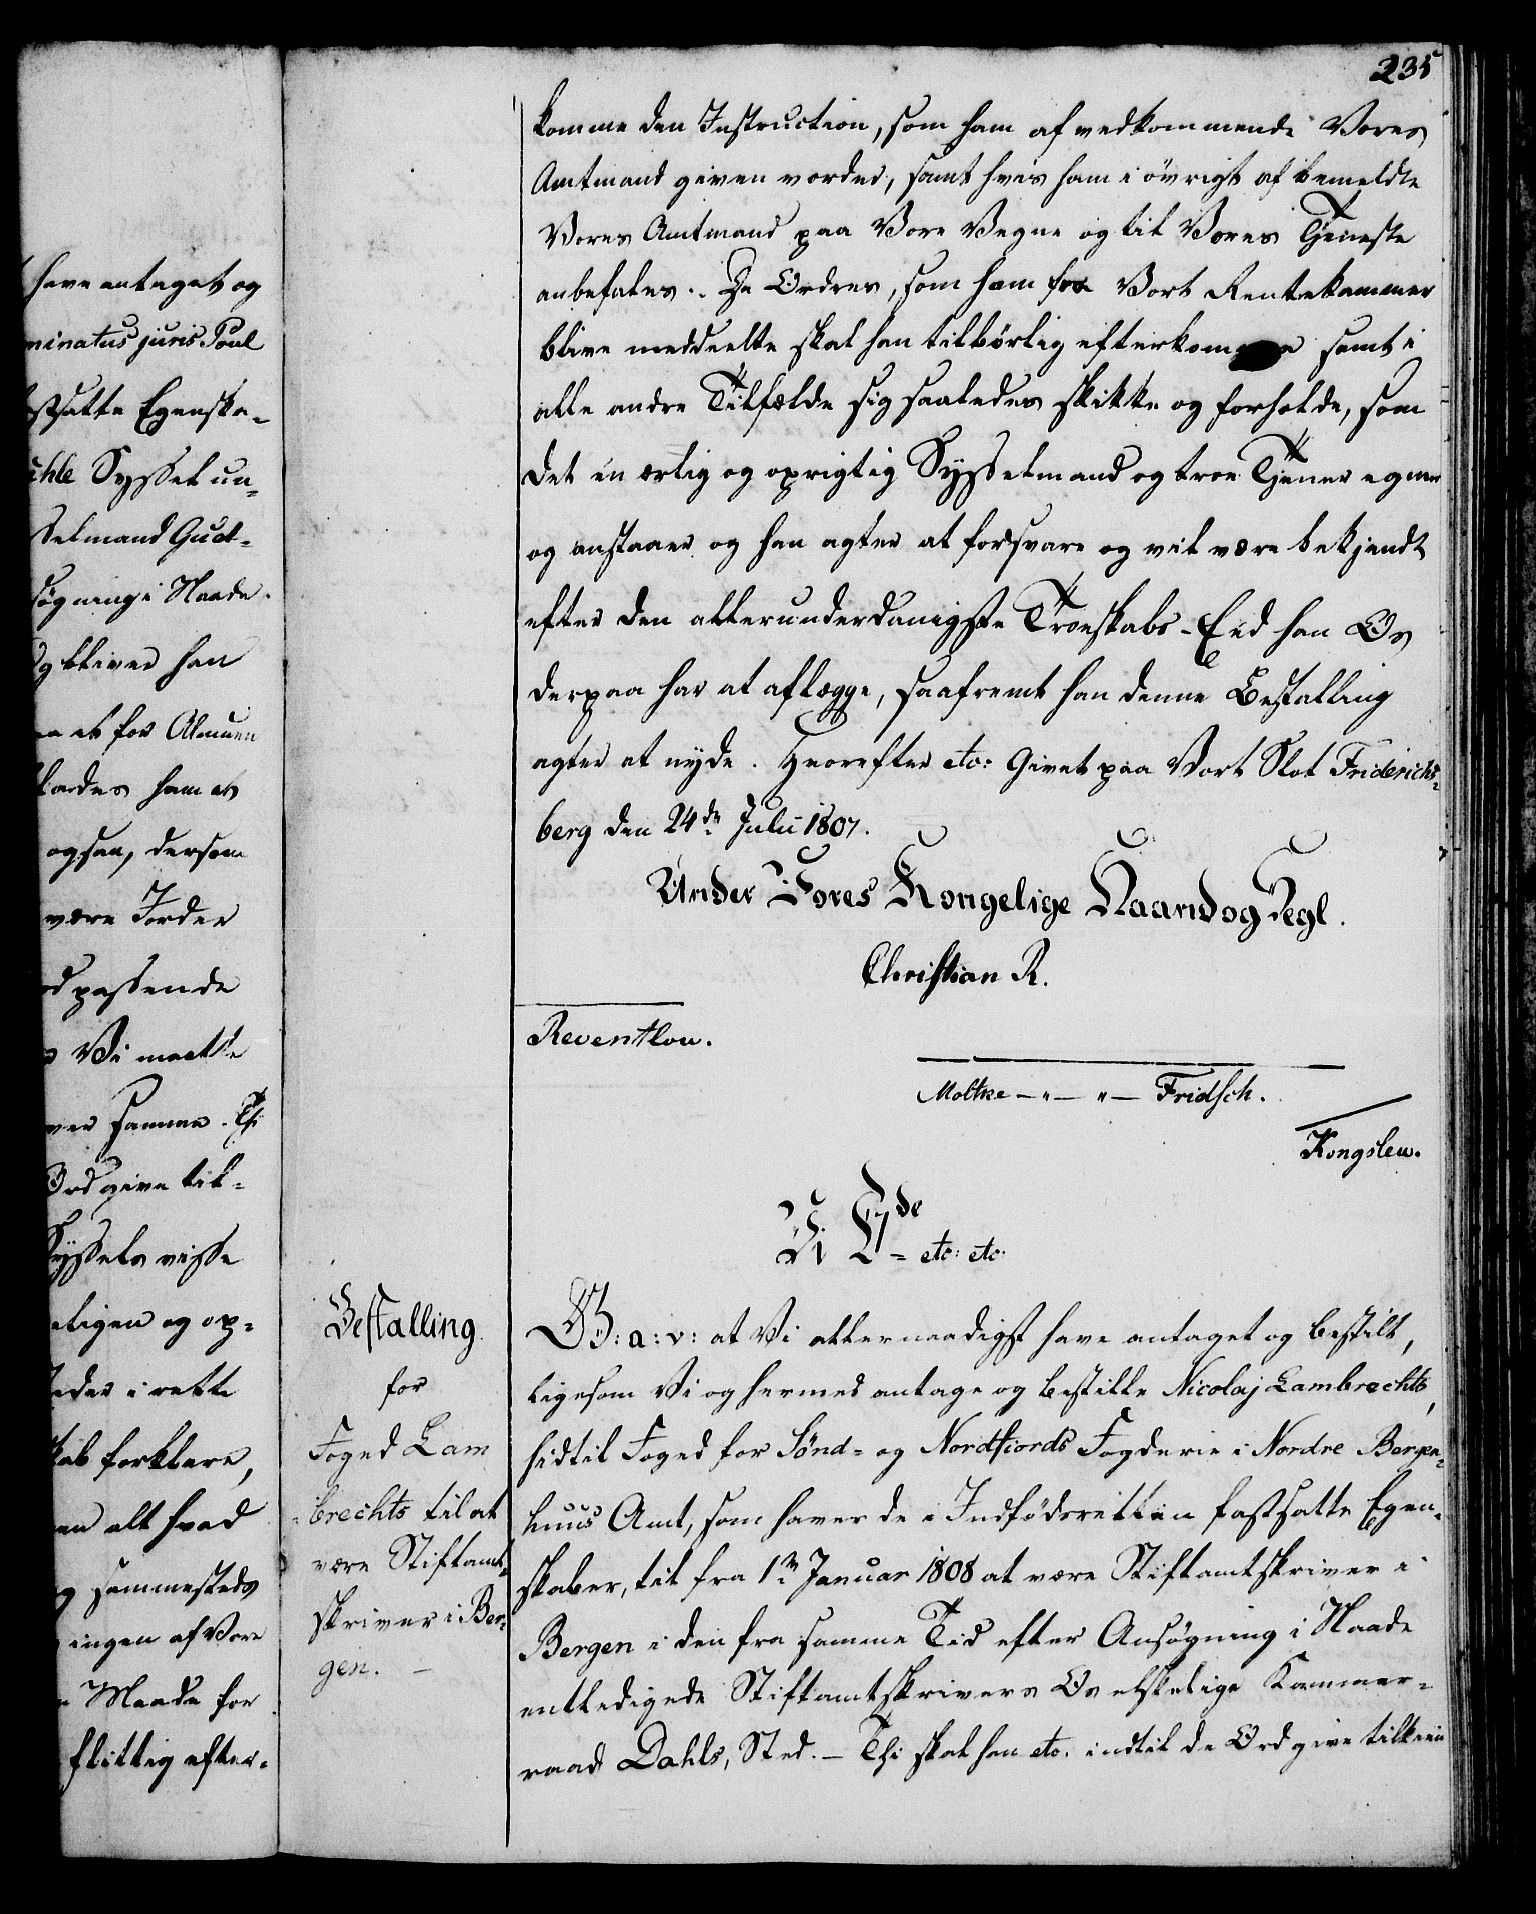 235
komme den Instruction, som ham af vedkommende Vores
Amtmand given vorder, samt hvis ham i øvrigt af bemeldte
Vores Amtmand paa Vore Vegne og til Vores Tjeneste
anbefales. De Ordres, som ham fra Vort Rentekammer
blive meddeelte skal han tilbørlig efterkomme samt i
alle andre Tilfælde sig saaledes skikke og forholde, som
det en ærlig og oprigtig Sysselmand og troe Tjener egner
og anstaaer og han agter at forsvare og vil være bekjendt
efter den allerunderdanigste Troeskabs-Eed han Os
derpaa har at aflægge, saafremt han denne Bestalling
agter at nyde. Hvorefter etc: Givet paa Vort Slot Friderichs-
berg den 24de Julii 1807.
Under Vores Kongelige Haand og Segl.
Christian R.
Reventlow.
Moltke — " — " — Fridsch.
Kongslew.
Vi C 7de etc: etc:
Bestalling
for
Foged Lam
brechts til at
være Stiftamt-
skriver i Ber-
gen. —
G: a: v: at Vi allernaadigst have antaget og bestilt,
ligesom Vi og hermed antage og bestille Nicolaj Lambrechts,
hidtil Foged for Sønd- og Nordfiords Fogderie i Nordre Bergen-
huus Amt, som haver de i Indfødsretten fastsatte Egen-
skaber, til fra 1ste Januar 1808 at være Stiftamtskriver i
Bergen i den fra samme Tid efter Ansøgning i Naade
entledigede Stiftamtskrivers Os elskelige Kammer-
raad Dahls, Sted. — Thi skal han etc. indtil de Ord give tilkien
have antaget og
minatus juris Poul
stsatte Egenska-
uhle Syssel un-
sselmand Gud-
søgning i Naade
og bliver han
et for Almuen
lades ham at
ogsaa, dersom
være Jorder
passende
Vi maatte
ver samme. Thi
Ord give til-
Syssels visse
eligen og op-
teder i rette
skab forklare,
en alt hvad
g sammesteds
ingen af Vore
Maade for
flittig efter-